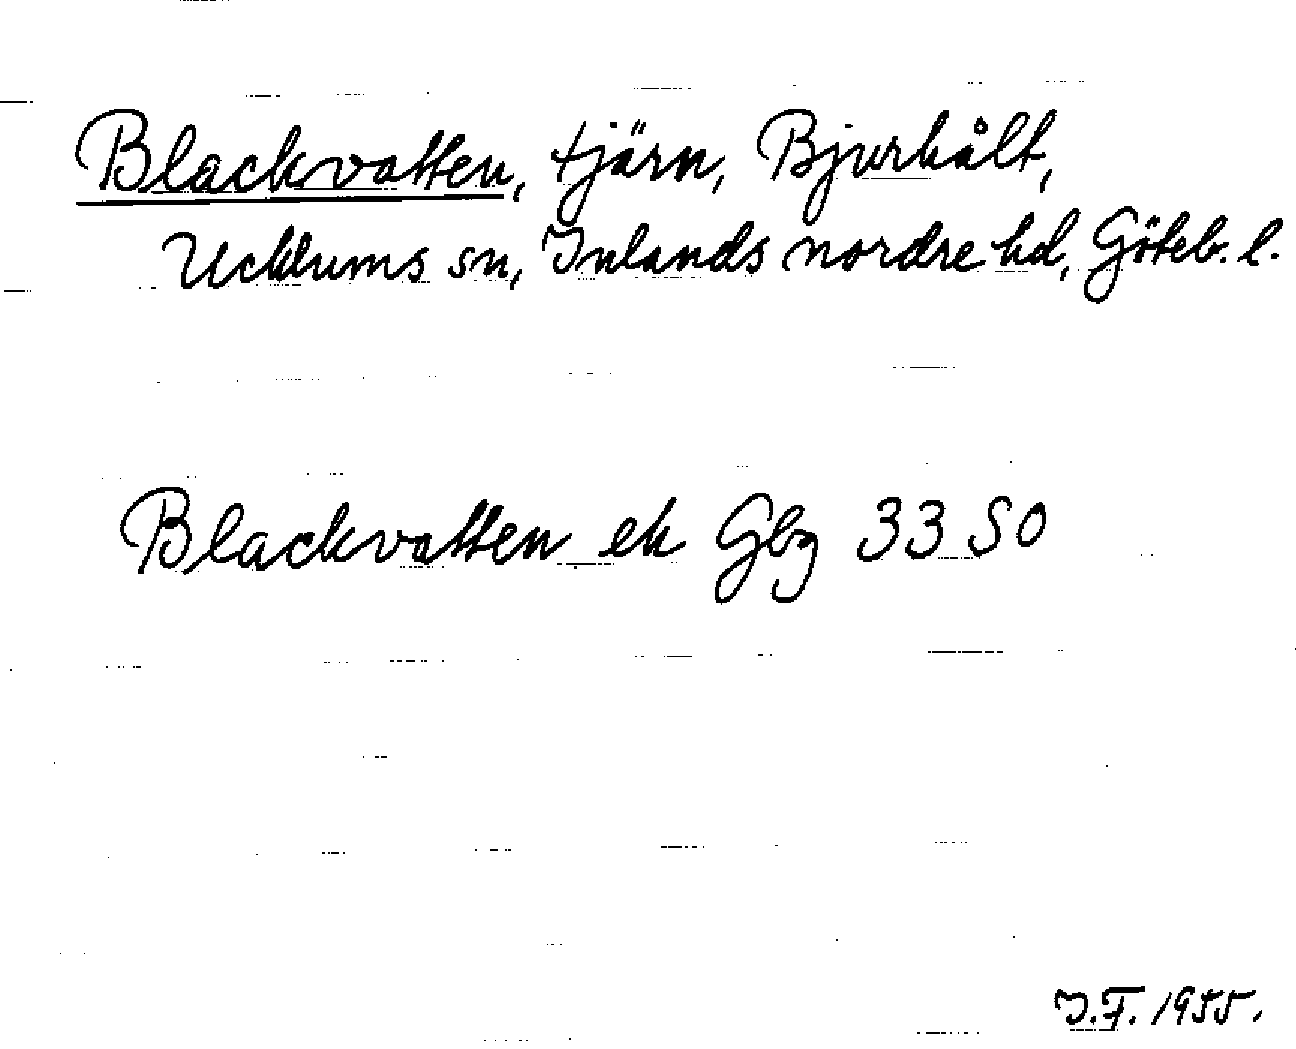 Blackvatten, tjärn, Bjurhålt,
Ucklums sn, Inlands nordre hd, Göteb. l.
Blackvatten ek Gbg 33 SO
J.F. 1955.